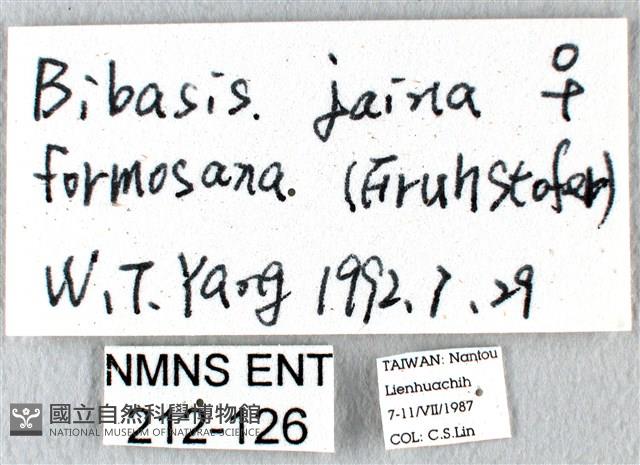 Bibasis. jaina ♀
formosana. (Fruhstofer)
W.T. Yang 1992.7.29
NMNS ENT
212-126
國立自然科學博物館
NATIONAL MUSEUM OF NATURAL SCIENCE
TAIWAN: Nantou
Lienhuachih
7-11/VII/1987
COL: C.S.Lin